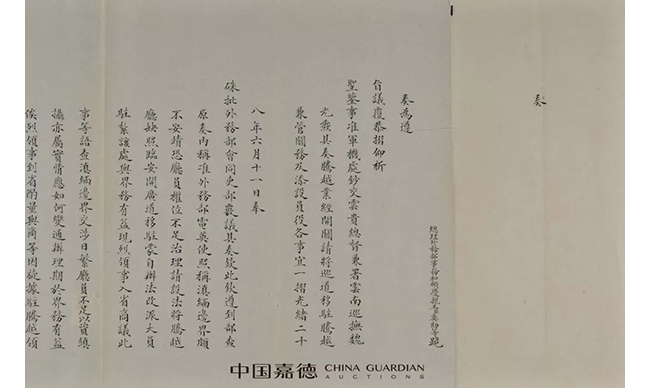 奏
總理外務部事務和碩慶親王臣奕劻等跪
奏為遵
旨議覆恭摺仰祈
聖鑒事准軍機處鈔交雲貴總督兼署雲南巡撫魏
光燾具奏騰越業經開關請將巡道移駐騰越
兼管關務及添設員役各事宜一摺光緒二十
八年六月十一日奉
硃批外務部會同吏部議具奏欽此欽遵到部查
原奏內稱准外務部電英使照稱滇緬邊界頗
不安靖恐廳員權位不足治理請設法將騰越
廳缺照臨安開廣道移駐蒙自辦法改派大員
駐紮該處與界務有益現烈領事入省商議此
事等語查滇緬邊界交涉日繁廳員不足以資鎮
攝亦屬實情應如何變通辦理期於界務有益
俟烈領事到省酌量與商等因旋據駐騰越領
中国嘉德 CHINA GUARDIAN
AUCTIONS